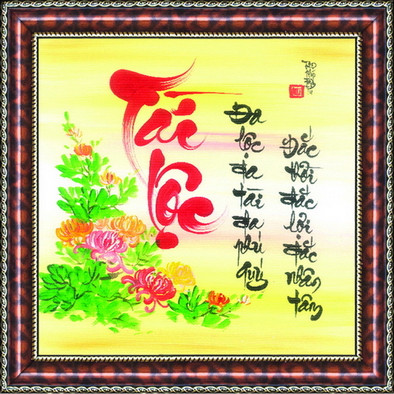 Tài
Lộc
Đa lộc đa tài đa phú quý
Đắc thời đắc lợi đắc nhân tâm